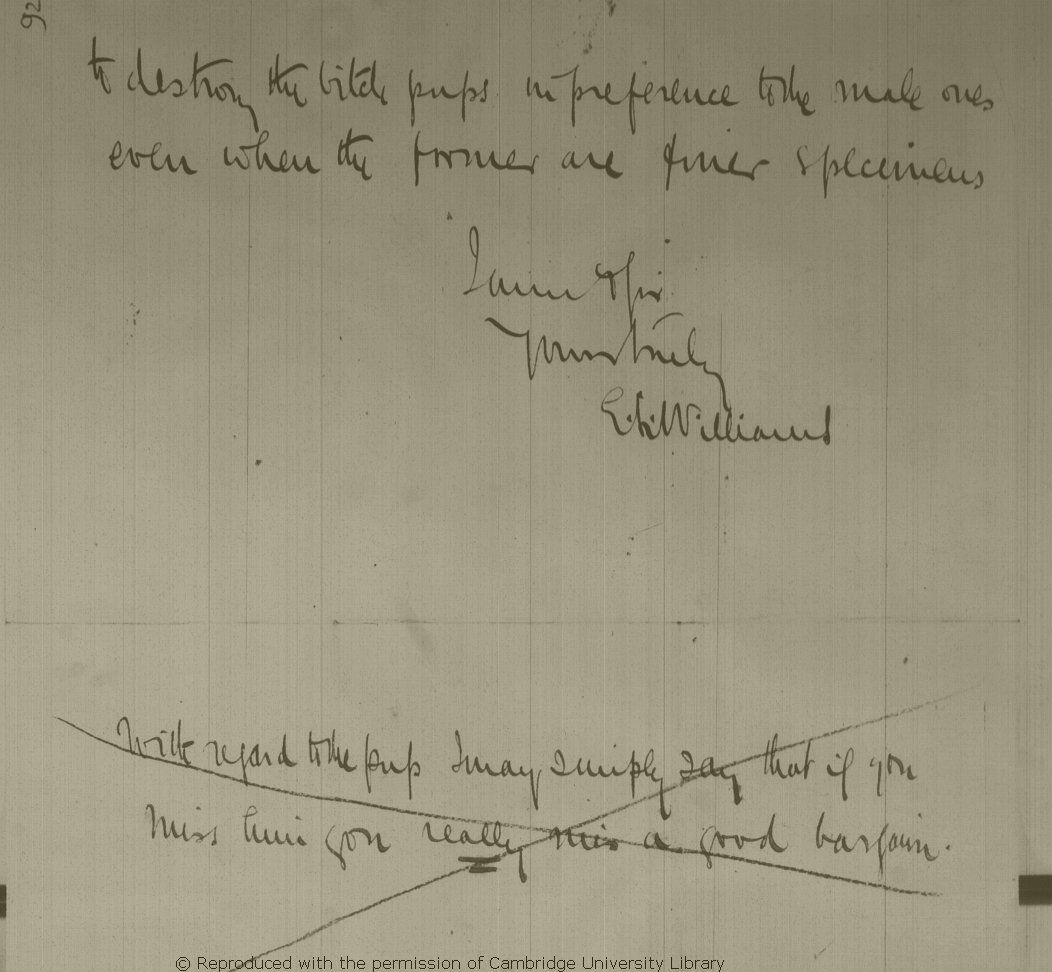 92
to destroy the bitch pups in preference to the male ones
even when the former are finer specimens
I am dr Sir
Yours truly
Williams
With regard to the pup I may simply say that if you
miss him you really miss a good bargain.
© Reproduced with the permission of Cambridge University Library